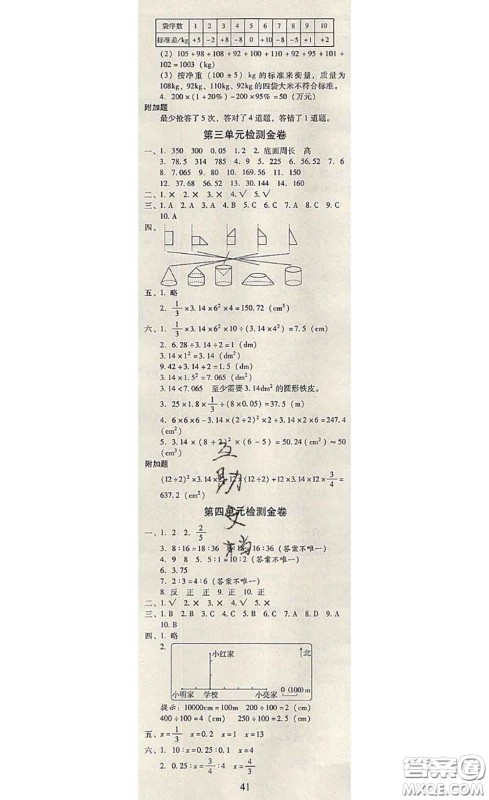 袋序数 1 2 3 4 5 6 7 8 9 10
标准差/kg +5 -2 +8 -8 0 +10 -8 -5 +1 +2
(2) 105+98+108+92+100+110+92+95+101+
102=1003 (kg)
(3) 按净重 (100±5) kg 的标准来衡量,质量为
108kg、92kg、110kg、92kg 的四袋大米不符合标准。
4. 200×(1+20%)-200×95%=50 (万元)
附加题
最少抢答了5次,答对了4道题,答错了1道题。
第三单元检测金卷
一、1. 350 300 0.05 1.2 2. 底面周长 高
3. 78.5 314 785 4. 9 5. 225 6. 56.52 6
7. 6 8. 80 9. 15 10. 169.56 11. 150
12. 37.68 12.56 13. 30.144 14. 160
二、1. × 2. × 3. × 4. √ 5. √
三、1. A 2. A 3. A 4. B 5. C 6. C 7. A 8. C 9. C
10. A
四、
五、1. 略
2. 1/3×3.14×6²×4=150.72 (cm³)
六、1. 1/3×3.14×6²×10÷(3.14×4²)=7.5 (cm)
2. 6.28÷3.14÷2=1 (dm)
3.14×1²=3.14 (dm²)
9.42÷3.14÷2=1.5 (dm)
3.14×1.5²=7.065 (dm²)
3.14<7.065 至少需要3.14dm²的圆形铁皮。
3. 25×1.8×1/3÷(8×0.05)=37.5 (m)
4. 6×6×6-3.14×(2÷2)²×2+3.14×2×6=247.4
(cm²)
5. 3.14×(8÷2)²×(6-5)=50.24 (cm³)≈50
(cm³)
附加题
(12÷2)²×3.14×(12÷2)÷12+3.14×12×12×3/4=
637.2 (cm²)
互助文档
第四单元检测金卷
一、1. 2 2. 2/5
3. 8∶16=18∶36 18∶36 (答案不唯一)
4. 9 8 5. 1∶5=10∶2 (答案不唯一)
6. 3.75
7. 2∶3=4∶6 (答案不唯一)
8. 反 正 正 9. 正 10. 正
二、1. √ 2. × 3. × 4. √ 5. √
三、1. A 2. D 3. C 4. B 5. B 6. D 7. A 8. D 9. A
10. B
四、1. 略
2. 小红家 北
小明家 学校 小亮家 0 (100) m
提示:10000cm=100m 200÷100=2 (cm)
400÷100=4 (cm) 250÷100=2.5 (cm)
五、x=1/3 x=0.2 x=1 x=13
六、1. 10∶x=0.25∶0.1 x=4
2. 0.25∶x=3/4∶4 x=4/3
41
答案圈
MXQE.COM